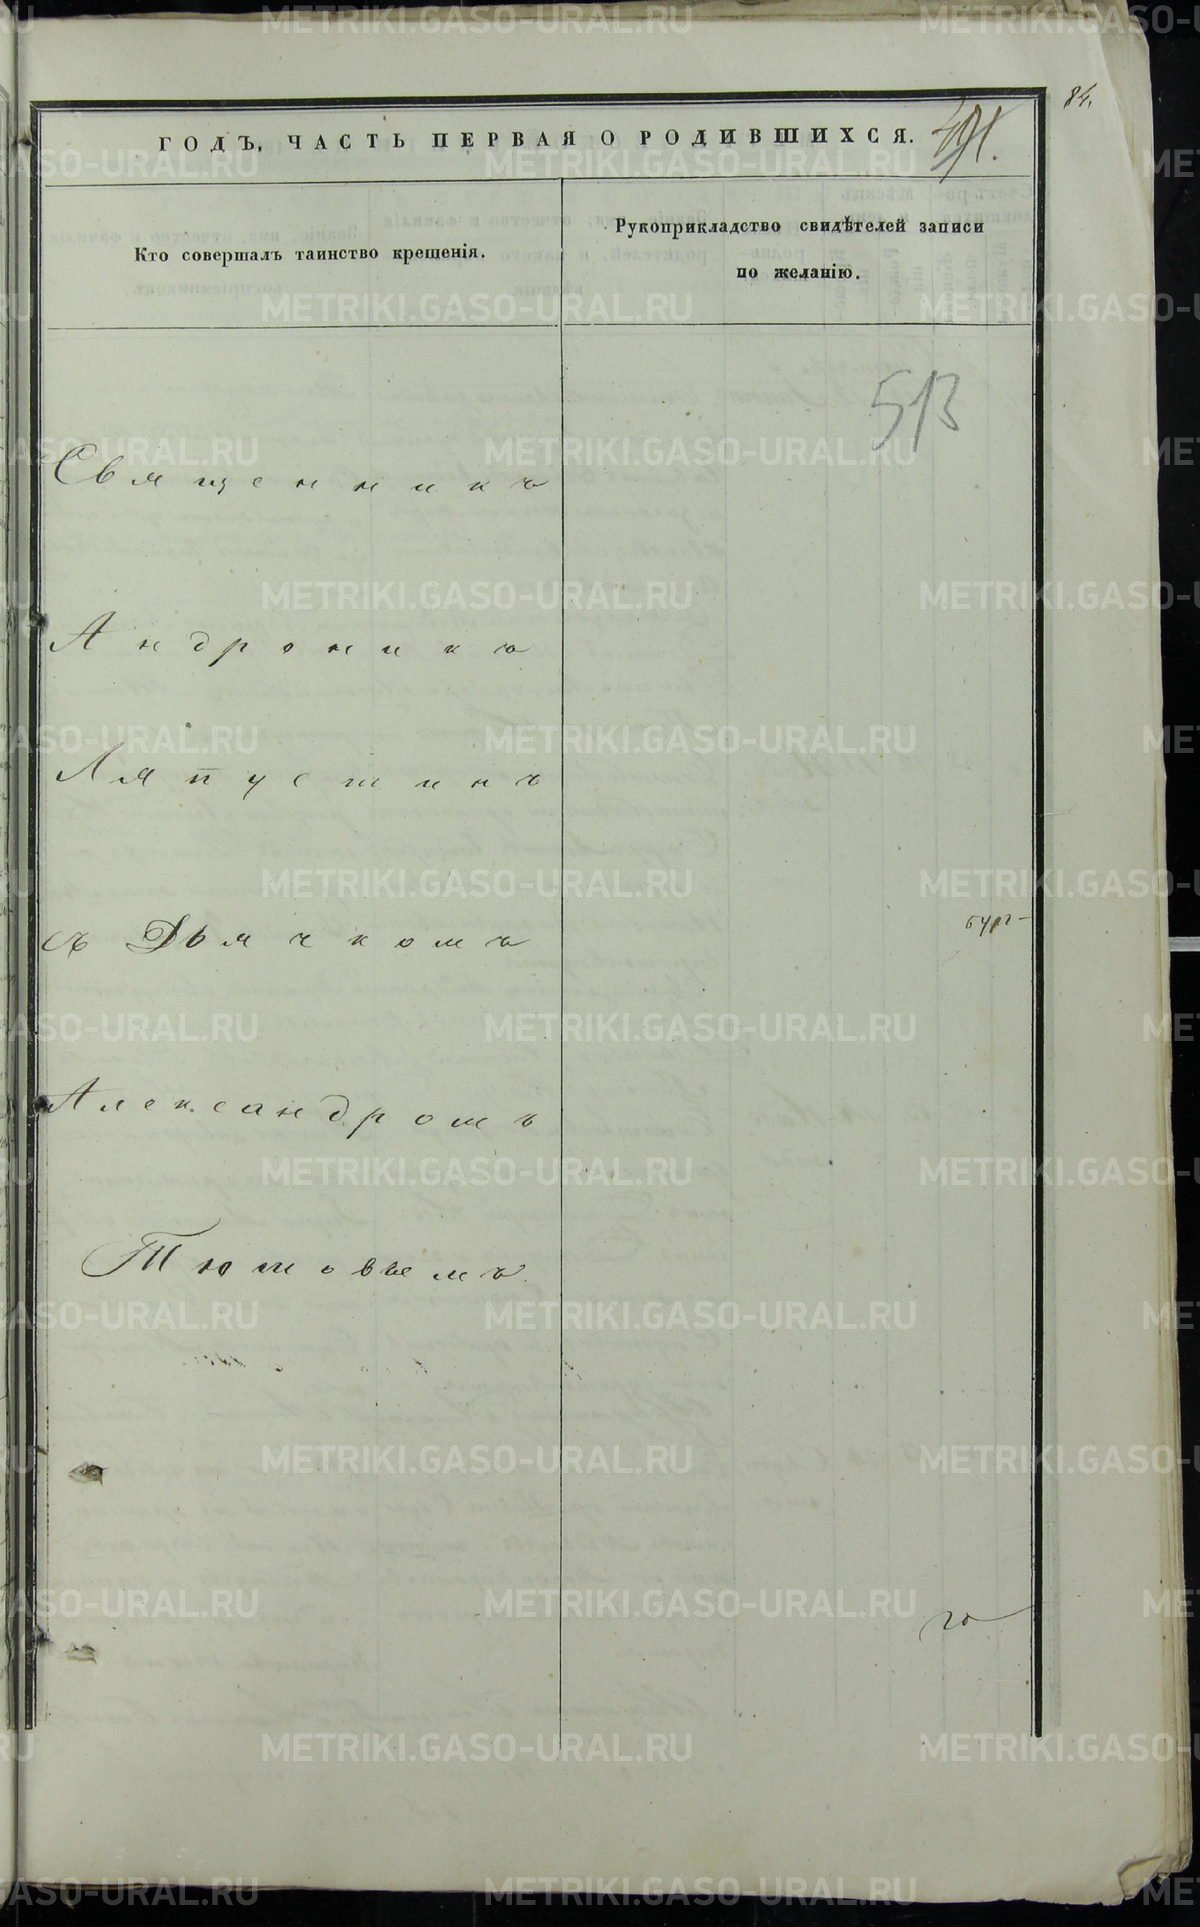 84.
ГОДЪ, ЧАСТЬ ПЕРВАЯ О РОДИВШИХСЯ.
Кто совершалъ таинство крещенія.
Рукоприкладство свидѣтелей записи
по желанію.
513
Священникъ
Андроникъ
Ляпустинъ
съ Дьячкомъ
Александромъ
Тютовымъ
METRIKI.GASO-URAL.RU